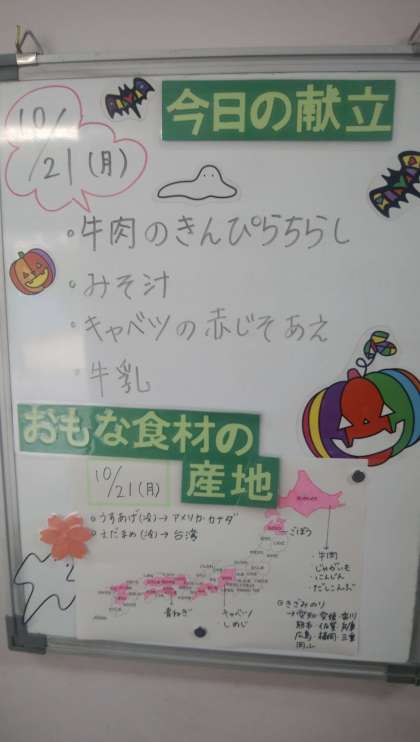 10/21(月)
今日の献立
・牛肉のきんぴらちらし
・みそ汁
・キャベツの赤じそあえ
・牛乳
おもな食材の
産地
10/21(月)
うすあげ(冷)→アメリカ・カナダ
えだまめ(冷)→台湾
ごぼう
・牛肉
・じゃがいも
・にんじん
・だしこんぶ
青ねぎ
・キャベツ
・しめじ
きざみのり
→愛知・愛媛・香川
熊本・佐賀・兵庫
広島・福岡・三重
岡山